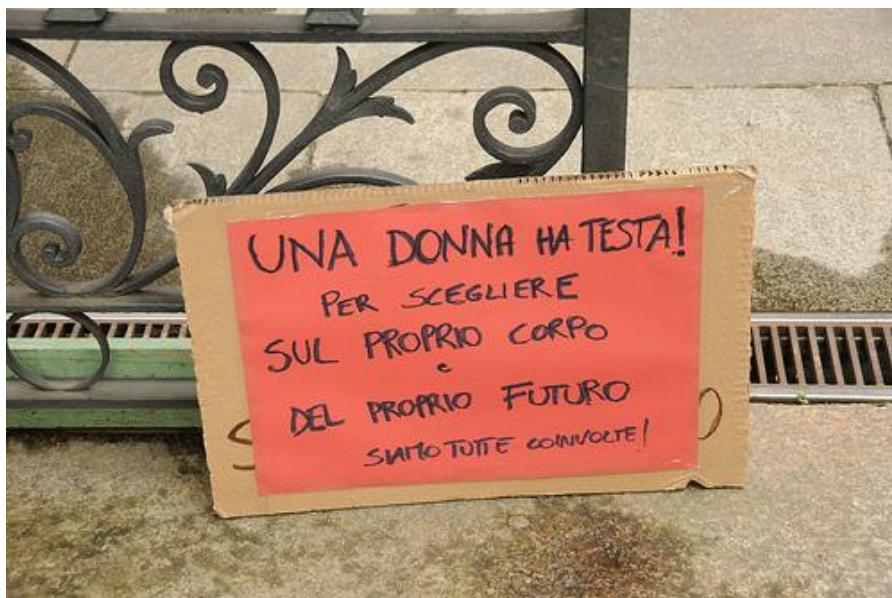 UNA DONNA HA TESTA!
PER SCEGLIERE
SUL PROPRIO CORPO
e
DEL PROPRIO FUTURO
SIAMO TUTTE COINVOLTE!